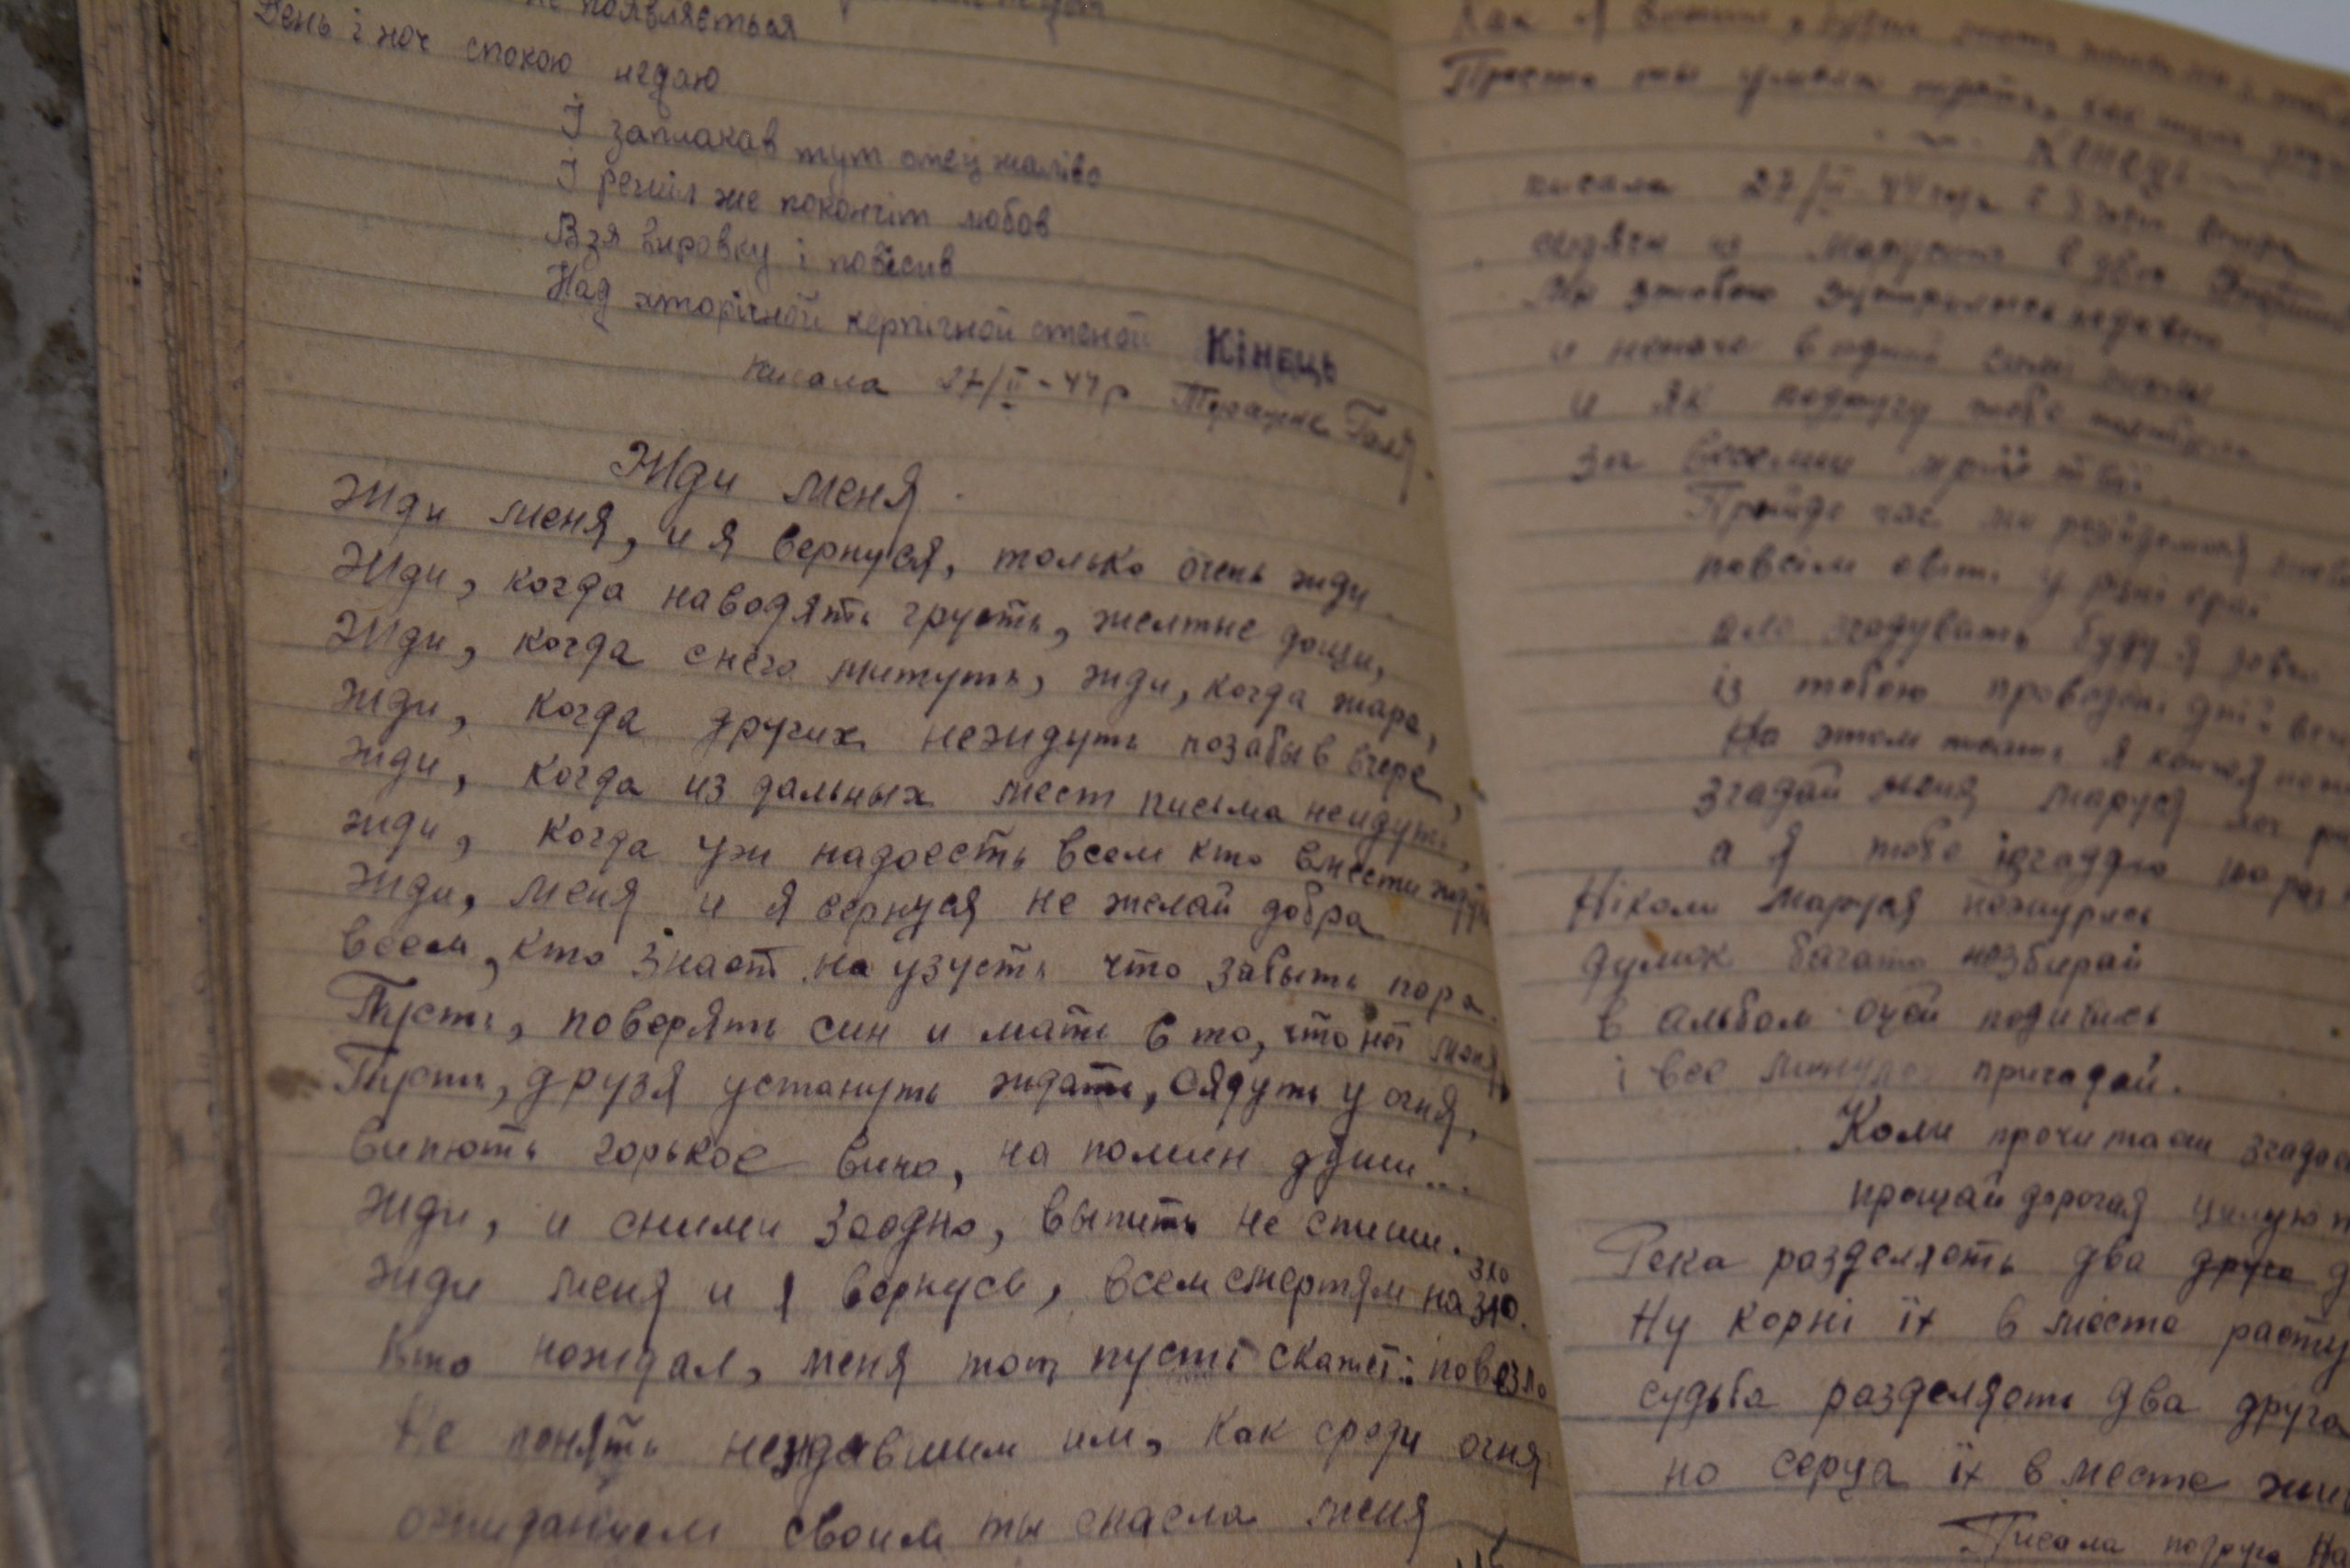 не появляється
День і ноч спокою недаю
І заплакав тут отец жаліво
І решил же покончіт любов
Взя вировку і повісив
Над хторічной керпічной стеной Кінець
писала 27/ІІ-44р Галя
Жди меня.
Жди меня, и я вернуся, только очень жди.
Жди, когда наводять грусть, желтые дощи,
Жди, когда снега митуть, жди, когда жара,
жди, когда других нежидуть позабыв вчера,
жди, когда из дальных мест письма неидуть,
жди, когда уж надоесть всем кто вмести ждуть
Жди, меня и я вернуся не желай добра
всем, кто знает на узусть что забыть пора.
Пусть, поверять син и мать в то, что нет меня,
Пусть, друзя устануть ждать, сядуть у огня,
випють горькое вино, на помин души...
Жди, и сними заодно, выпить не спиши.
жди меня и я вернусь, всем смертям на зло.
зло
Кто неждал, меня тот пусть скажет: повезло
Не понять неждавшим им, как среди огня
ожиданием своим ты спасла меня
Как я
Просто ты умела ждать, как
Кенець
писала 27/ІІ-44 года в вечера
сидячи из Марусею в двох
Ми зтобою зустрілись недавно
и неначе в одной жили
и як подругу тебе
за веселии мрії твії
Пройде час ми розійдемся
повсім світі у різні краї
але згадувать буду я
із тобою проведені дні й
На этом я кончая
згадай меня Маруся хоч
а я тебе ізгадаю
Ніколи Маруся нежурись
думок багато незбирай
в альбом очей подивись
і все минуле пригадай.
Коли прочитаєш згадай
прощай дорогая цилую
Река разделяеть два друга
Ну корні їх в месте расту
судьба разделяеть два друга
но серца їх в месте
Писала подруга